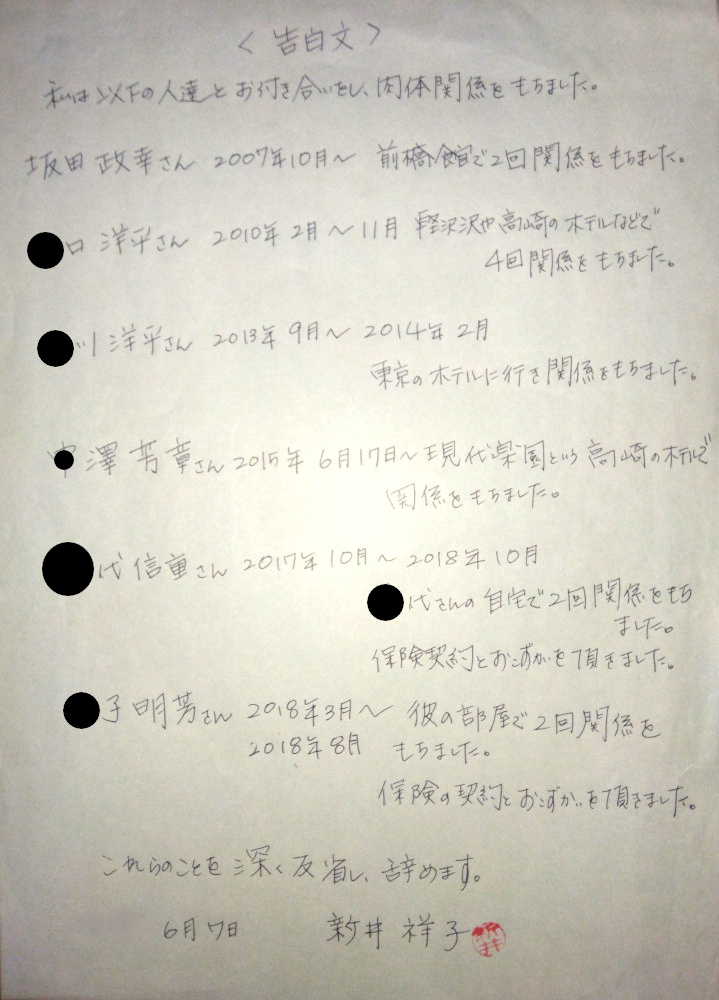 ＜告白文＞
私は以下の人達とお付き合いをし、肉体関係をもちました。
坂田 政幸さん 2007年10月～ 前橋館で2回関係をもちました。
口 洋平さん 2010年 2月～11月 軽沢沢や高崎のホテルなどで
4回関係をもちました。
川 洋平さん 2013年 9月～ 2014年 2月
東京のホテルに行き関係をもちました。
澤 芳章さん 2015年 6月17日～現代楽園という高崎のホテルで
関係をもちました。
代 信重さん 2017年 10月～ 2018年 10月
代さんの自宅で2回関係をもち
ました。
保険契約とおこずかいを頂きました。
子 明芳さん 2018年3月～ 彼の部屋で2回関係を
2018年8月 もちました。
保険の契約とおこずかいを頂きました。
これらのことを深く反省し、辞めます。
6月7日 新井 祥子